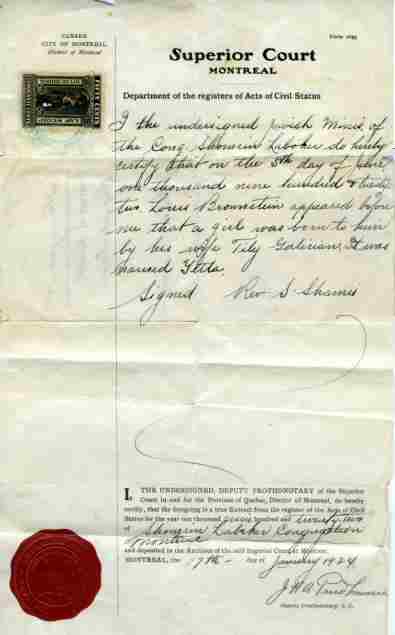 CANADA
CITY OF MONTREAL
District of Montreal
Superior Court
MONTREAL
Department of the registers of Acts of Civil Status
I the undersigned Jewish Minis. of
the Cong Shomrin Laboker do hereby
certify that on the 5th day of June
one thousand nine hundred & twenty
two Louis Brownstein appeared before
me that a girl was born to him
by his wife Tily It was
named Yetta.
Signed Rev S Shames
I, THE UNDERSIGNED, DEPUTY PROTHONOTARY of the Superior
Court in and for the Province of Quebec, District of Montreal, do hereby
certify, that the foregoing is a true Extract from the register of the Acts of Civil
Status for the year one thousand nine hundred and twenty two
of Shomrin Labker Congregation
Montreal
and deposited in the Archives of the said Superior Court at Montreal.
MONTREAL, the 17th day of January 1924
Deputy Prothonotary S. C.